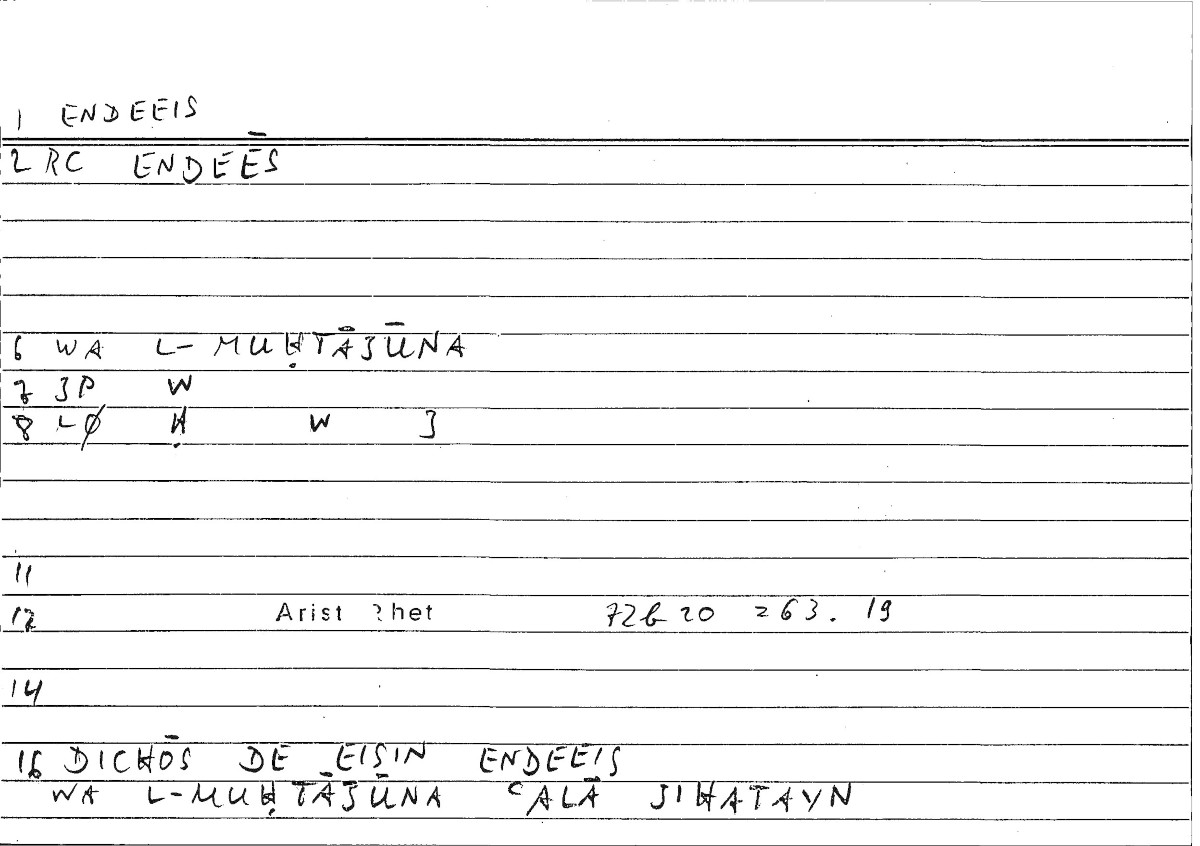 1 ENDEEIS
2 RC ENDEĒS
6 WA L-MUḤTĀJŪNA
7 JP W
8 LØ Ḥ W J
11
12 Arist Rhet 72b 20 = 63.19
14
16 DICHŌS DE EISIN ENDEEIS
WA L-MUḤTĀJŪNA ʿALĀ JIHATAYN